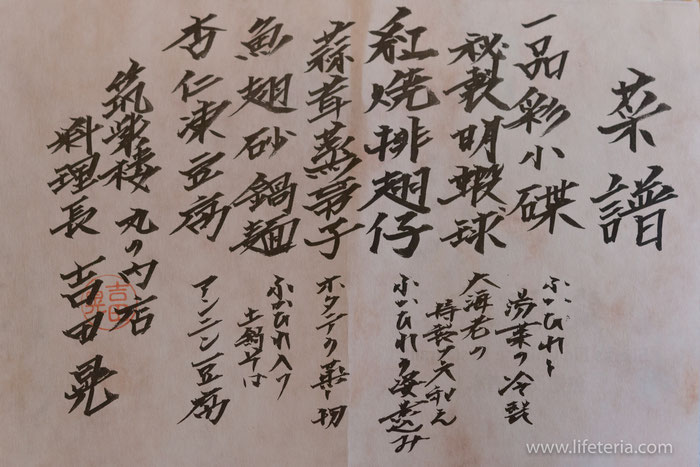 菜譜
一品彩小碟
ふかひれと
湯葉の冷製
秘製明蝦球
大海老の
特製ソース和え
紅焼排翅仔
ふかひれの姿煮込み
蒜茸蒸帯子
ホタテの蒸し物
魚翅砂鍋麺
ふかひれ入り
土鍋そば
杏仁凍豆腐
アンニン豆腐
筑紫樓 丸の内店
料理長 吉田晃
www.lifeteria.com